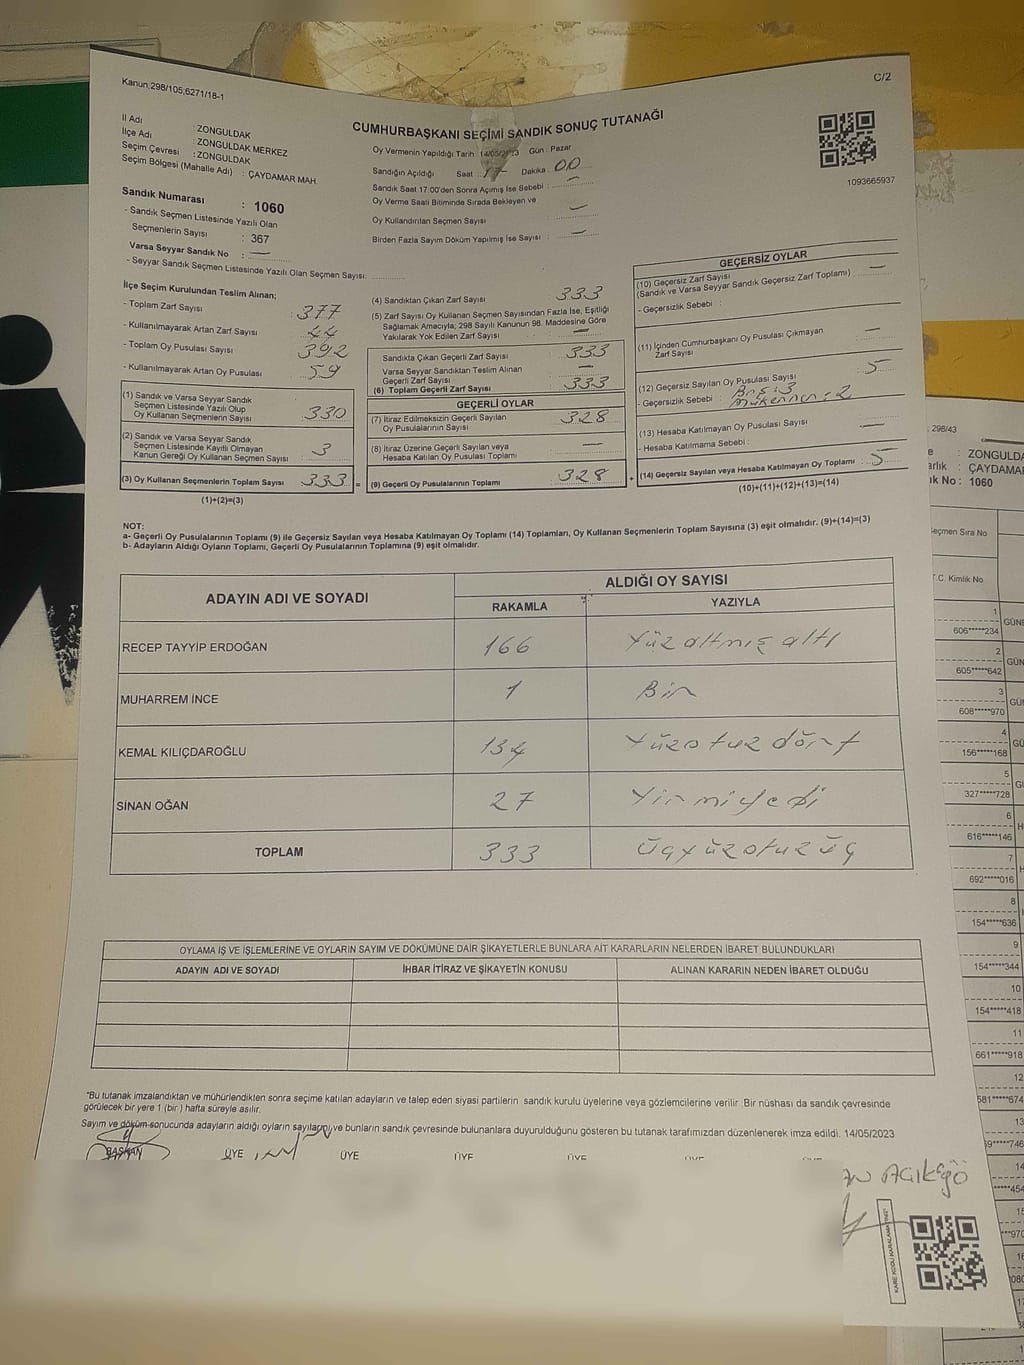 Kanun;298/105;6271/18-1
C/2
CUMHURBAŞKANI SEÇİMİ SANDIK SONUÇ TUTANAĞI
İl Adı : ZONGULDAK
İlçe Adı : ZONGULDAK MERKEZ
Seçim Çevresi : ZONGULDAK
Seçim Bölgesi (Mahalle Adı) : ÇAYDAMAR MAH.
Oy Vermenin Yapıldığı Tarih 14/05/2023 Gün : Pazar
Sandığın Açıldığı Saat : 17 Dakika : 00
Sandık Saat 17:00'den Sonra Açılmış İse Sebebi : —
Oy Verme Saati Bitiminde Sırada Bekleyen ve
Oy Kullandırılan Seçmen Sayısı —
Birden Fazla Sayım Döküm Yapılmış İse Sayısı : —
1093665937
Sandık Numarası : 1060
- Sandık Seçmen Listesinde Yazılı Olan
Seçmenlerin Sayısı : 367
Varsa Seyyar Sandık No : —
- Seyyar Sandık Seçmen Listesinde Yazılı Olan Seçmen Sayısı:
İlçe Seçim Kurulundan Teslim Alınan;
- Toplam Zarf Sayısı 377
- Kullanılmayarak Artan Zarf Sayısı 44
- Toplam Oy Pusulası Sayısı 392
- Kullanılmayarak Artan Oy Pusulası 59
(1) Sandık ve Varsa Seyyar Sandık
Seçmen Listesinde Yazılı Olup
Oy Kullanan Seçmenlerin Sayısı 330
(2) Sandık ve Varsa Seyyar Sandık
Seçmen Listesinde Kayıtlı Olmayan
Kanun Gereği Oy Kullanan Seçmen Sayısı 3
(3) Oy Kullanan Seçmenlerin Toplam Sayısı 333 =
(1)+(2)=(3)
(4) Sandıktan Çıkan Zarf Sayısı 333
(5) Zarf Sayısı Oy Kullanan Seçmen Sayısından Fazla İse, Eşitliği
Sağlamak Amacıyla; 298 Sayılı Kanunun 98. Maddesine Göre
Yakılarak Yok Edilen Zarf Sayısı —
Sandıkta Çıkan Geçerli Zarf Sayısı 333
Varsa Seyyar Sandıktan Teslim Alınan
Geçerli Zarf Sayısı —
(6) Toplam Geçerli Zarf Sayısı 333
GEÇERLİ OYLAR
(7) İtiraz Edilmeksizin Geçerli Sayılan
Oy Pusulalarının Sayısı 328
(8) İtiraz Üzerine Geçerli Sayılan veya
Hesaba Katılan Oy Pusulası Toplamı —
(9) Geçerli Oy Pusulalarının Toplamı 328 +
GEÇERSİZ OYLAR
(10) Geçersiz Zarf Sayısı —
(Sandık ve Varsa Seyyar Sandık Geçersiz Zarf Toplamı)
- Geçersizlik Sebebi :
(11) İçinden Cumhurbaşkanı Oy Pusulası Çıkmayan
Zarf Sayısı —
(12) Geçersiz Sayılan Oy Pusulası Sayısı 5
- Geçersizlik Sebebi : Boş: 3
Mükerrer: 2
(13) Hesaba Katılmayan Oy Pusulası Sayısı —
- Hesaba Katılmama Sebebi :
(14) Geçersiz Sayılan veya Hesaba Katılmayan Oy Toplamı 5
(10)+(11)+(12)+(13)=(14)
NOT:
a- Geçerli Oy Pusulalarının Toplamı (9) ile Geçersiz Sayılan veya Hesaba Katılmayan Oy Toplamı (14) Toplamları, Oy Kullanan Seçmenlerin Toplam Sayısına (3) eşit olmalıdır. (9)+(14)=(3)
b- Adayların Aldığı Oyların Toplamı, Geçerli Oy Pusulalarının Toplamına (9) eşit olmalıdır.
ADAYIN ADI VE SOYADI
ALDIĞI OY SAYISI
RAKAMLA YAZIYLA
RECEP TAYYİP ERDOĞAN 166 Yüzaltmış altı
MUHARREM İNCE 1 Bir
KEMAL KILIÇDAROĞLU 134 Yüzotuz dört
SİNAN OĞAN 27 Yirmiyedi
TOPLAM 333 Üçyüzotuz üç
OYLAMA İŞ VE İŞLEMLERİNE VE OYLARIN SAYIM VE DÖKÜMÜNE DAİR ŞİKAYETLERLE BUNLARA AİT KARARLARIN NELERDEN İBARET BULUNDUKLARI
ADAYIN ADI VE SOYADI İHBAR İTİRAZ VE ŞİKAYETİN KONUSU ALINAN KARARIN NEDEN İBARET OLDUĞU
*Bu tutanak imzalandıktan ve mühürlendikten sonra seçime katılan adayların ve talep eden siyasi partilerin sandık kurulu üyelerine veya gözlemcilerine verilir. Bir nüshası da sandık çevresinde
görülecek bir yere 1 (bir) hafta süreyle asılır.
Sayım ve döküm sonucunda adayların aldığı oyların sayılarını ve bunların sandık çevresinde bulunanlara duyurulduğunu gösteren bu tutanak tarafımızdan düzenlenerek imza edildi. 14/05/2023
BAŞKAN ÜYE ÜYE ÜYE ÜYE ÜYE
KARE KODU KARALAMAYINIZ!
298/43
ZONGULDA
arlık : ÇAYDAMAR
ık No : 1060
eçmen Sıra No
T.C. Kimlik No
1
606*****234
2
605*****642
3
608*****970
4
156*****168
5
327*****728
6
616*****146
7
692*****016
8
154*****636
9
154*****344
10
154*****418
11
661*****918
12
581*****674
13
14